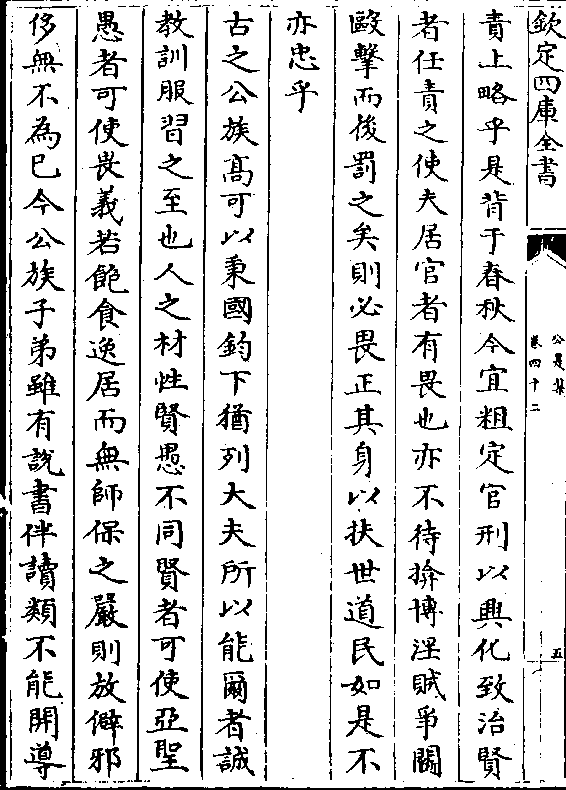 欽定四庫全書
公是集
卷四十二
五
責上略乎是背于春秋今宜粗定官刑以興化致治賢
者任責之使夫居官者有畏也亦不待搒博淫賊爭鬭
毆擊而後罰之矣則必畏正其身以扶世道民如是不
亦忠乎
古之公族髙可以秉國鈞下猶列大夫所以能爾者誠
教訓服習之至也人之材性賢愚不同賢者可使亞聖
愚者可使畏義若飽食逸居而無師保之嚴則放僻邪
侈無不為已今公族子弟雖有説書伴讀類不能開導